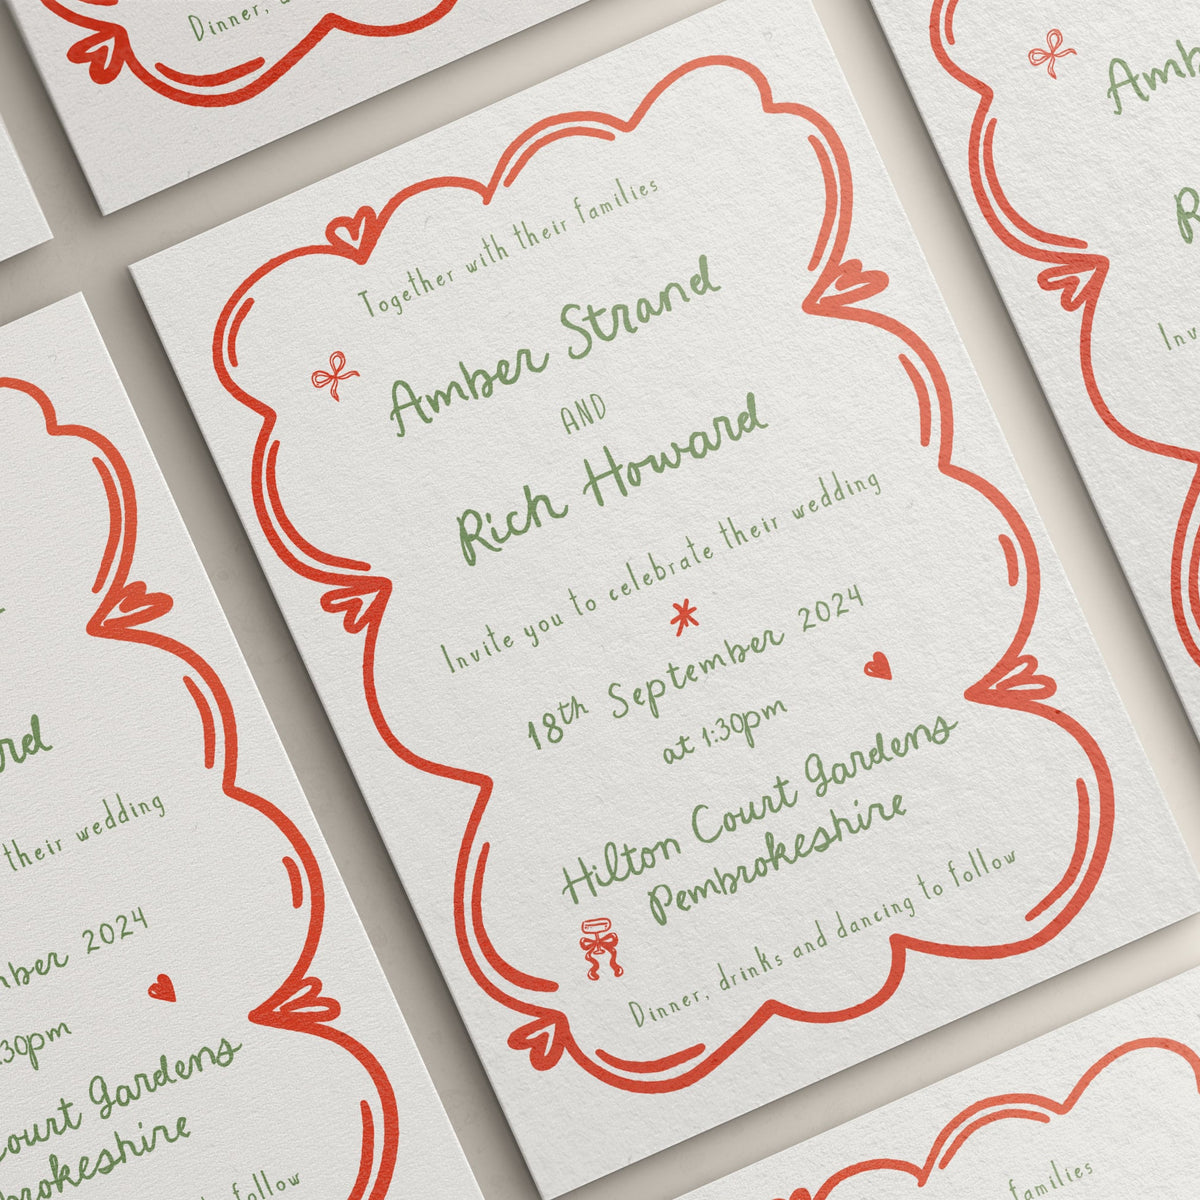 Dinner,
Together with their families
Amber Strand
AND
Rich Howard
Invite you to celebrate their wedding
18th September 2024
at 1:30pm
Hilton Court Gardens
Pembrokeshire
Dinner, drinks and dancing to follow
their wedding
2024
:30pm
Court Gardens
follow
families